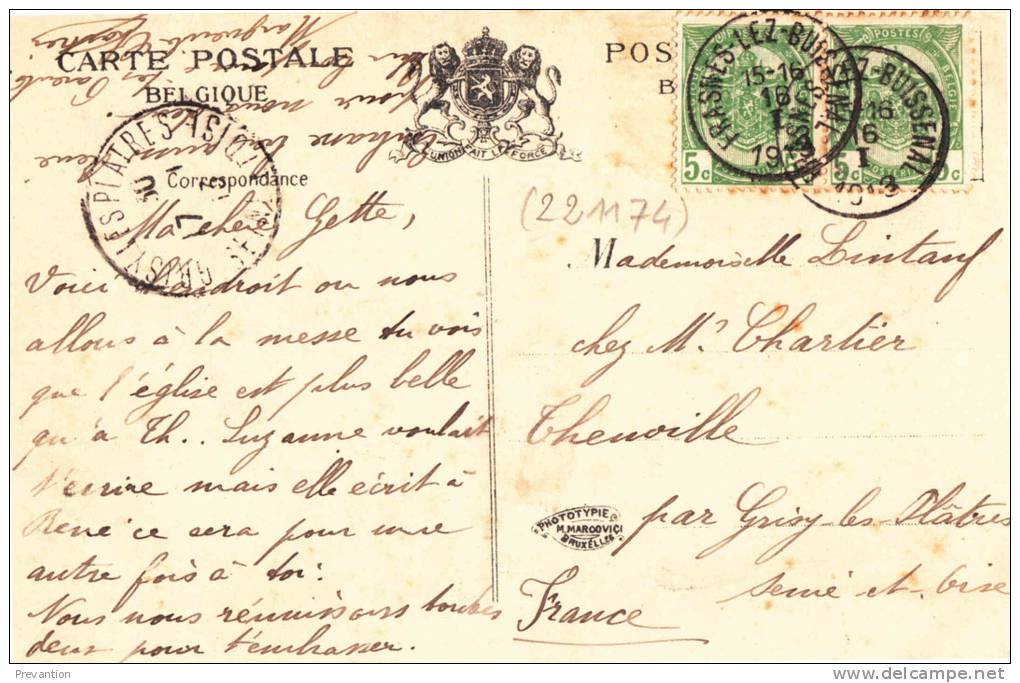 CARTE POSTALE
BELGIQUE
POS
B
L'UNION FAIT LA FORCE
FRASNES-LEZ-BUISSENAL
15-16
16
I
1913
LEZ-BUISSENAL
16
16
I
1913
POSTES
5c
5c
GRISY LES PLATRES
17
Correspondance
(221174)
Ma chere Gette,
Voici l'endroit ou nous
allons à la messe tu vois
que l'église est plus belle
qu'à Th.. Suzanne voulait
t'ecrire mais elle écrit à
René ce sera pour une
autre fois à toi.
Nous nous réunissons toutes
deux pour t'embrasser.
Mademoiselle Lintanf
chez Mr Chartier
Theuville
par Grisy-les-Plâtres
Seine-et-Oise
France
PHOTOTYPIE
M. MARCOVICI
BRUXELLES
Prevantion
delcampe.net